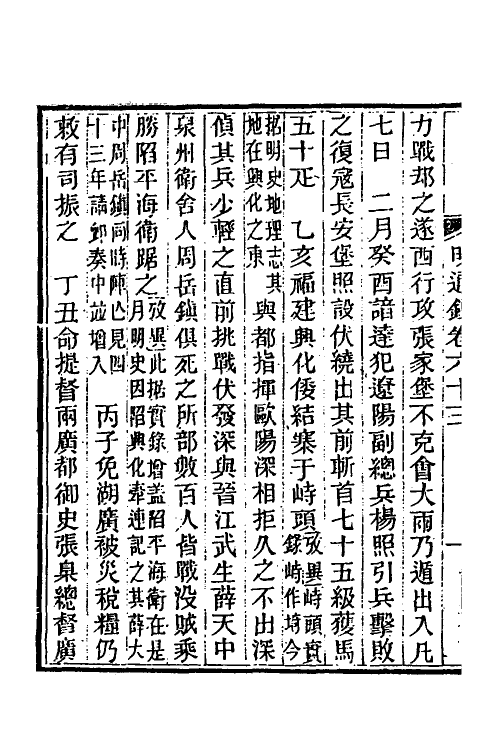 明通鑑卷六十三 一
力戰却之遂西行攻張家堡不克會大雨乃遁出入凡
七日 二月癸酉諳達犯遼陽副總兵楊照引兵擊敗
之復寇長安堡照設伏繞出其前斬首七十五級獲馬
五十疋 乙亥福建興化倭結寨于峙頭攷異峙頭實錄峙作埼今
據明史地理志其地在興化之東與都指揮歐陽深相拒久之不出深
偵其兵少輕之直前挑戰伏發深與晉江武生薛天中
泉州衛舍人周岳鎮俱死之所部數百人皆戰没賊乘
勝陷平海衛踞之攷異此據實錄增蓋陷平海衛在是月明史因陷興化牽連記之其薛大
中周岳鎮同時陣亡見四十三年請卹奏中並增入 丙子免湖廣被災稅糧仍
敕有司振之 丁丑命提督兩廣都御史張臬總督廣